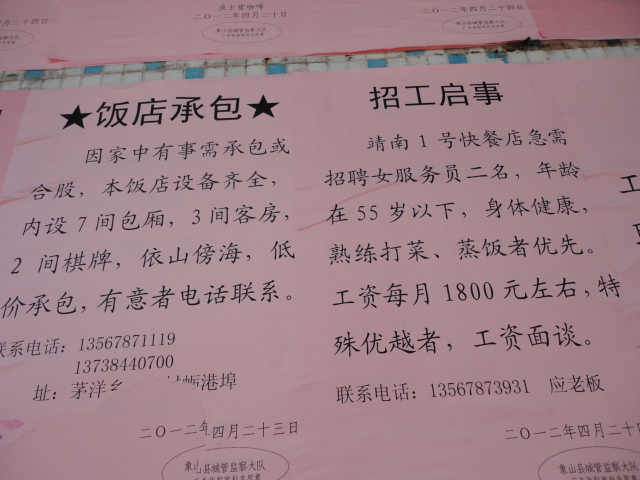 二〇一二年四月二十四日
波士堡咖啡
二〇一二年四月二十日
象山县城管监察大队
二〇一二年四月二十四日
★饭店承包★
因家中有事需承包或
合股，本饭店设备齐全，
内设7间包厢，3间客房，
2间棋牌，依山傍海，低
价承包，有意者电话联系。
联系电话：13567871119
13738440700
址：茅洋乡
蛎港埠
二〇一二年四月二十三日
象山县城管监察大队
招工启事
靖南1号快餐店急需
招聘女服务员二名，年龄
在55岁以下，身体健康，
熟练打菜、蒸饭者优先。
工资每月1800元左右，特
殊优越者，工资面谈。
联系电话：13567873931 应老板
二〇一二年四月二十
象山县城管监察大队